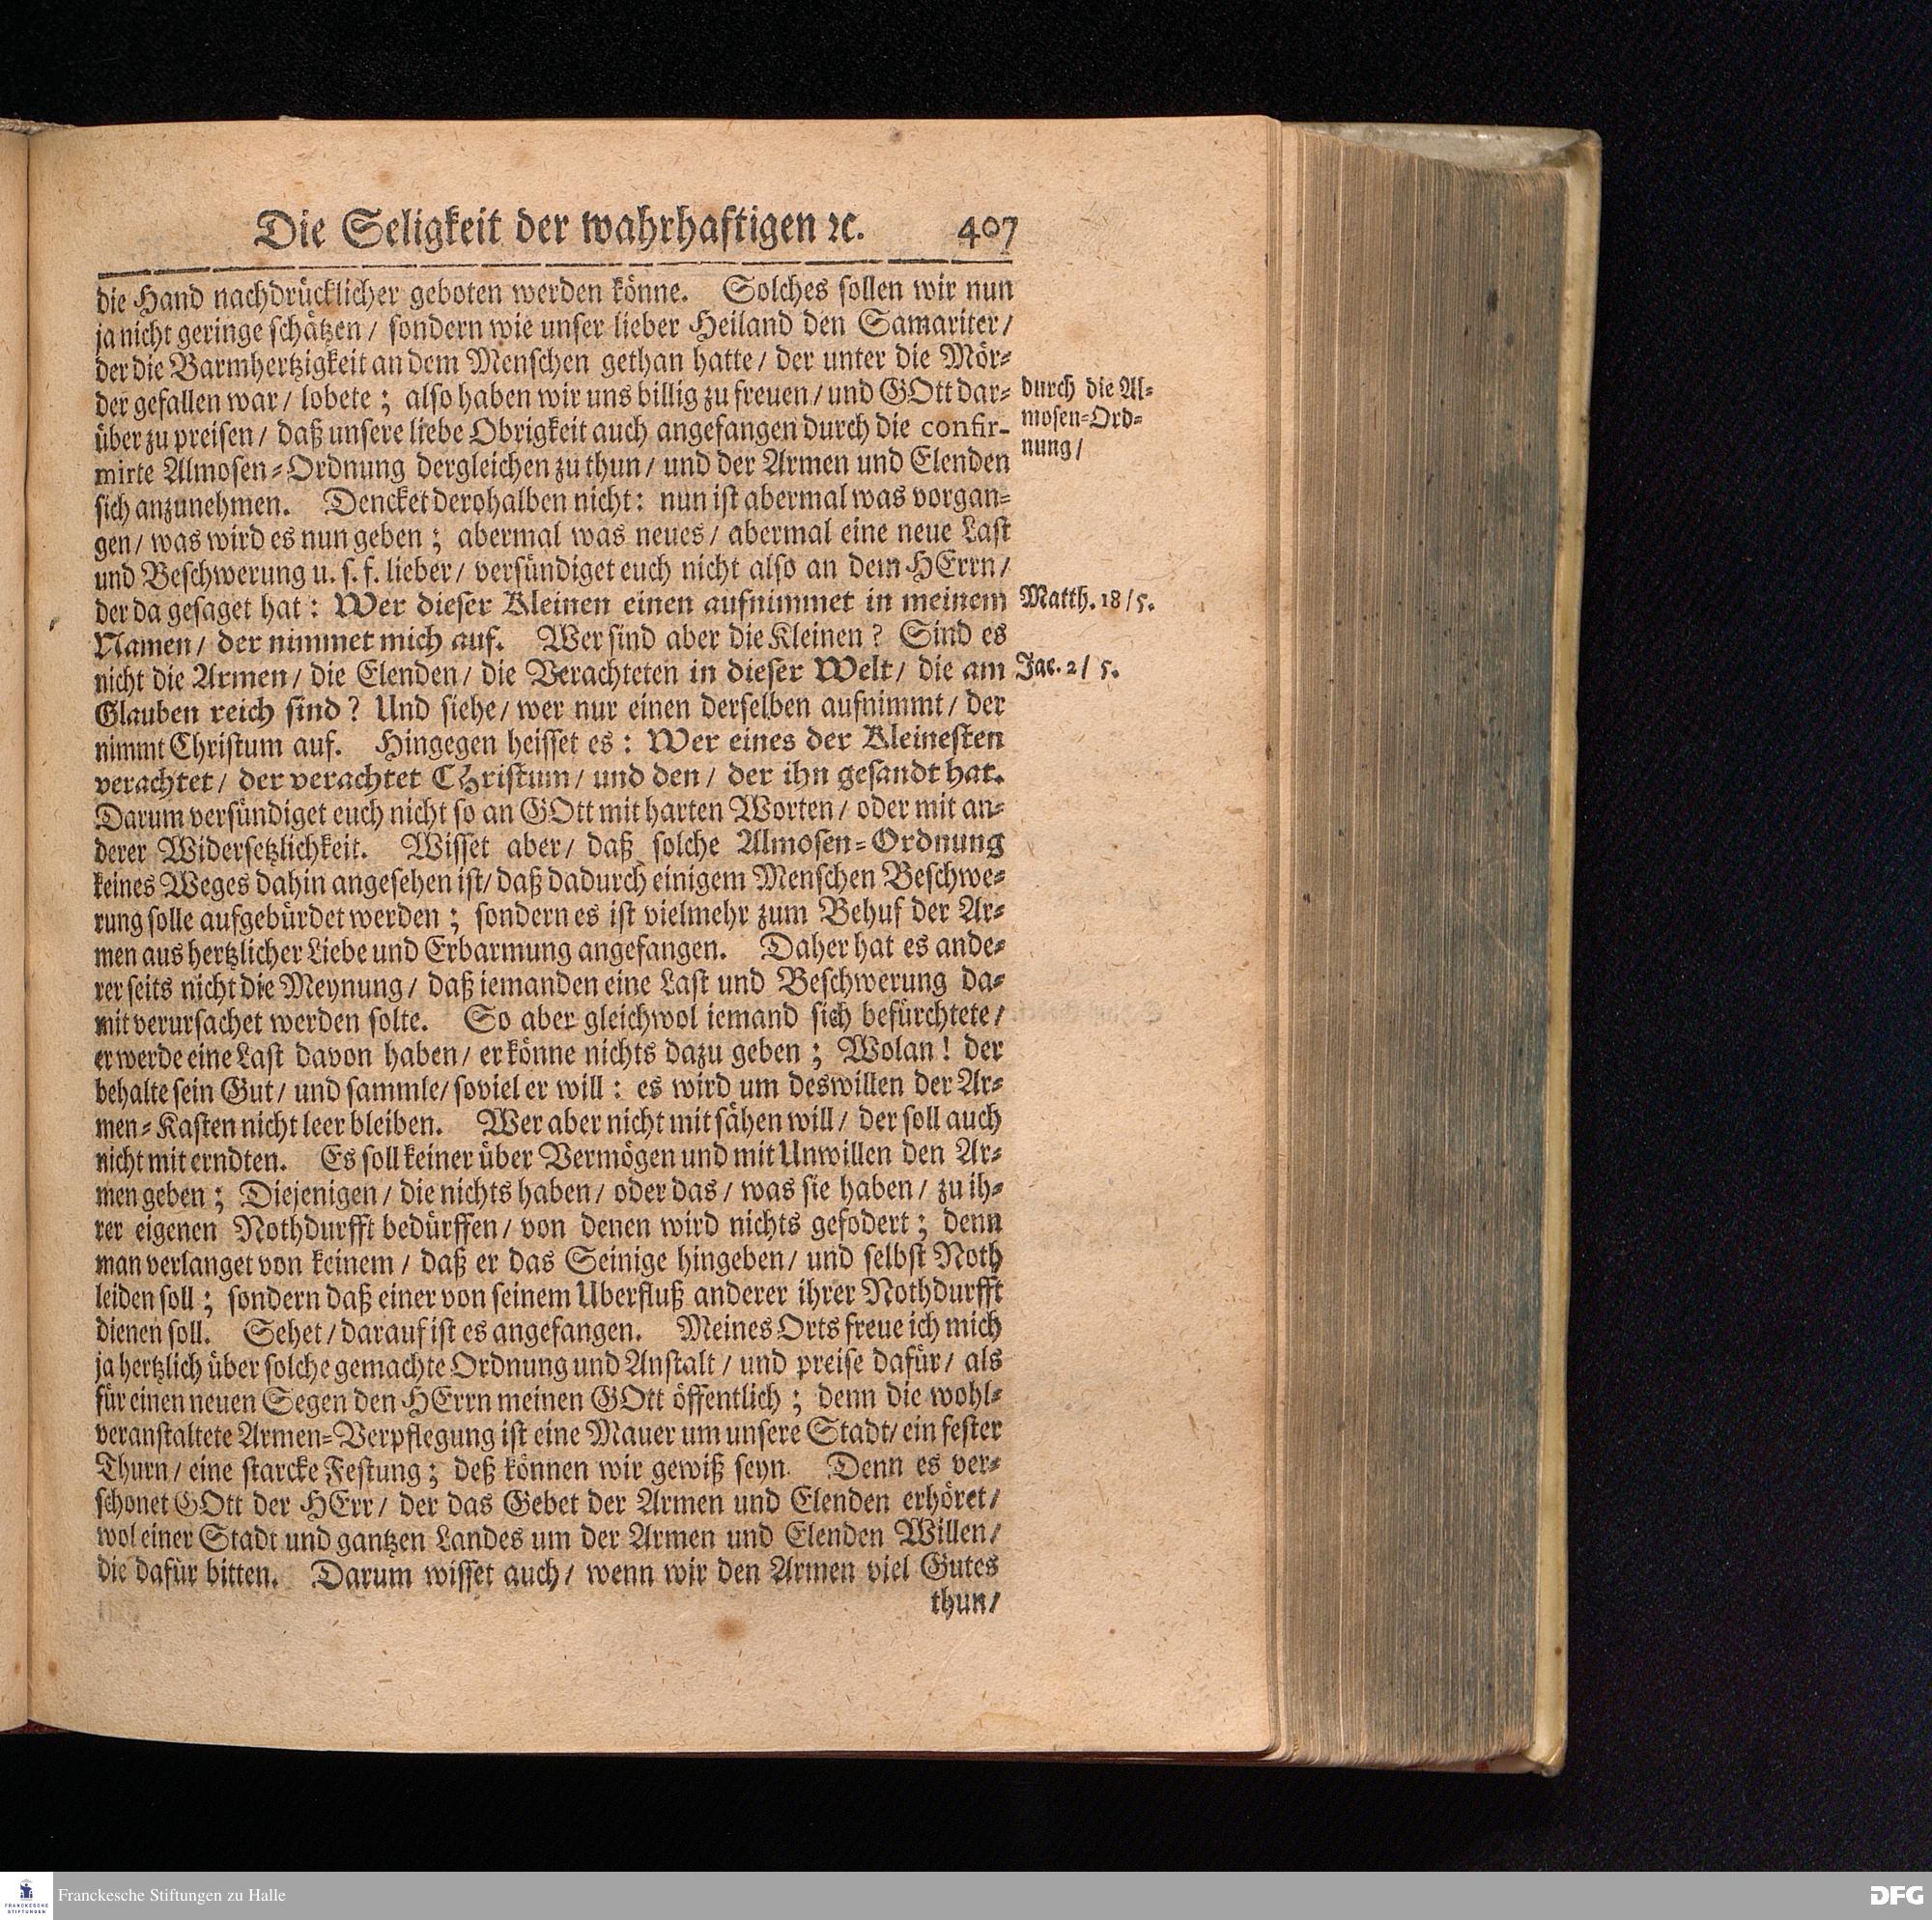 Die Seligkeit der wahrhaftigen ꝛc. 407
die Hand nachdrücklicher geboten werden könne. Solches sollen wir nun
ja nicht geringe schätzen / sondern wie unser lieber Heiland den Samariter /
der die Barmhertzigkeit an dem Menschen gethan hatte / der unter die Mör-
der gefallen war / lobete ; also haben wir uns billig zu freuen / und GOtt dar-
über zu preisen / daß unsere liebe Obrigkeit auch angefangen durch die confir-
mirte Almosen-Ordnung dergleichen zu thun / und der Armen und Elenden
sich anzunehmen. Dencket derohalben nicht: nun ist abermal was vorgan-
gen / was wird es nun geben ; abermal was neues / abermal eine neue Last
und Beschwerung u. s. f. lieber / versündiget euch nicht also an dem HErrn /
der da gesaget hat : Wer dieser Kleinen einen aufnimmet in meinem
Namen / der nimmet mich auf. Wer sind aber die Kleinen ? Sind es
nicht die Armen / die Elenden / die Verachteten in dieser Welt / die am
Glauben reich sind ? Und siehe / wer nur einen derselben aufnimmt / der
nimmt Christum auf. Hingegen heisset es : Wer eines der Kleinesten
verachtet / der verachtet CHristum / und den / der ihn gesandt hat.
Darum versündiget euch nicht so an GOtt mit harten Worten / oder mit an-
derer Widersetzlichkeit. Wisset aber / daß solche Almosen-Ordnung
keines Weges dahin angesehen ist / daß dadurch einigem Menschen Beschwe-
rung solle aufgebürdet werden ; sondern es ist vielmehr zum Behuf der Ar-
men aus hertzlicher Liebe und Erbarmung angefangen. Daher hat es ande-
rer seits nicht die Meynung / daß iemanden eine Last und Beschwerung da-
mit verursachet werden solte. So aber gleichwol iemand sich befürchtete /
er werde eine Last davon haben / er könne nichts dazu geben ; Wolan ! der
behalte sein Gut / und sammle / soviel er will : es wird um deswillen der Ar-
men-Kasten nicht leer bleiben. Wer aber nicht mit sähen will / der soll auch
nicht mit erndten. Es soll keiner über Vermögen und mit Unwillen den Ar-
men geben ; Diejenigen / die nichts haben / oder das / was sie haben / zu ih-
rer eigenen Nothdurfft bedürffen / von denen wird nichts gefodert ; denn
man verlanget von keinem / daß er das Seinige hingeben / und selbst Noth
leiden soll ; sondern daß einer von seinem Uberfluß anderer ihrer Nothdurfft
dienen soll. Sehet / darauf ist es angefangen. Meines Orts freue ich mich
ja hertzlich über solche gemachte Ordnung und Anstalt / und preise dafür / als
für einen neuen Segen den HErrn meinen GOtt öffentlich ; denn die wohl-
veranstaltete Armen-Verpflegung ist eine Mauer um unsere Stadt / ein fester
Thurn / eine starcke Festung ; deß können wir gewiß seyn. Denn es ver-
schonet GOtt der HErr / der das Gebet der Armen und Elenden erhöret /
wol einer Stadt und gantzen Landes um der Armen und Elenden Willen /
die dafür bitten. Darum wisset auch / wenn wir den Armen viel Gutes
thun /
durch die Al-
mosen-Ord-
nung /
Matth. 18 / 5.
Jac. 2 / 5.
Franckesche Stiftungen zu Halle
FRANCKESCHE
STIFTUNGEN
DFG